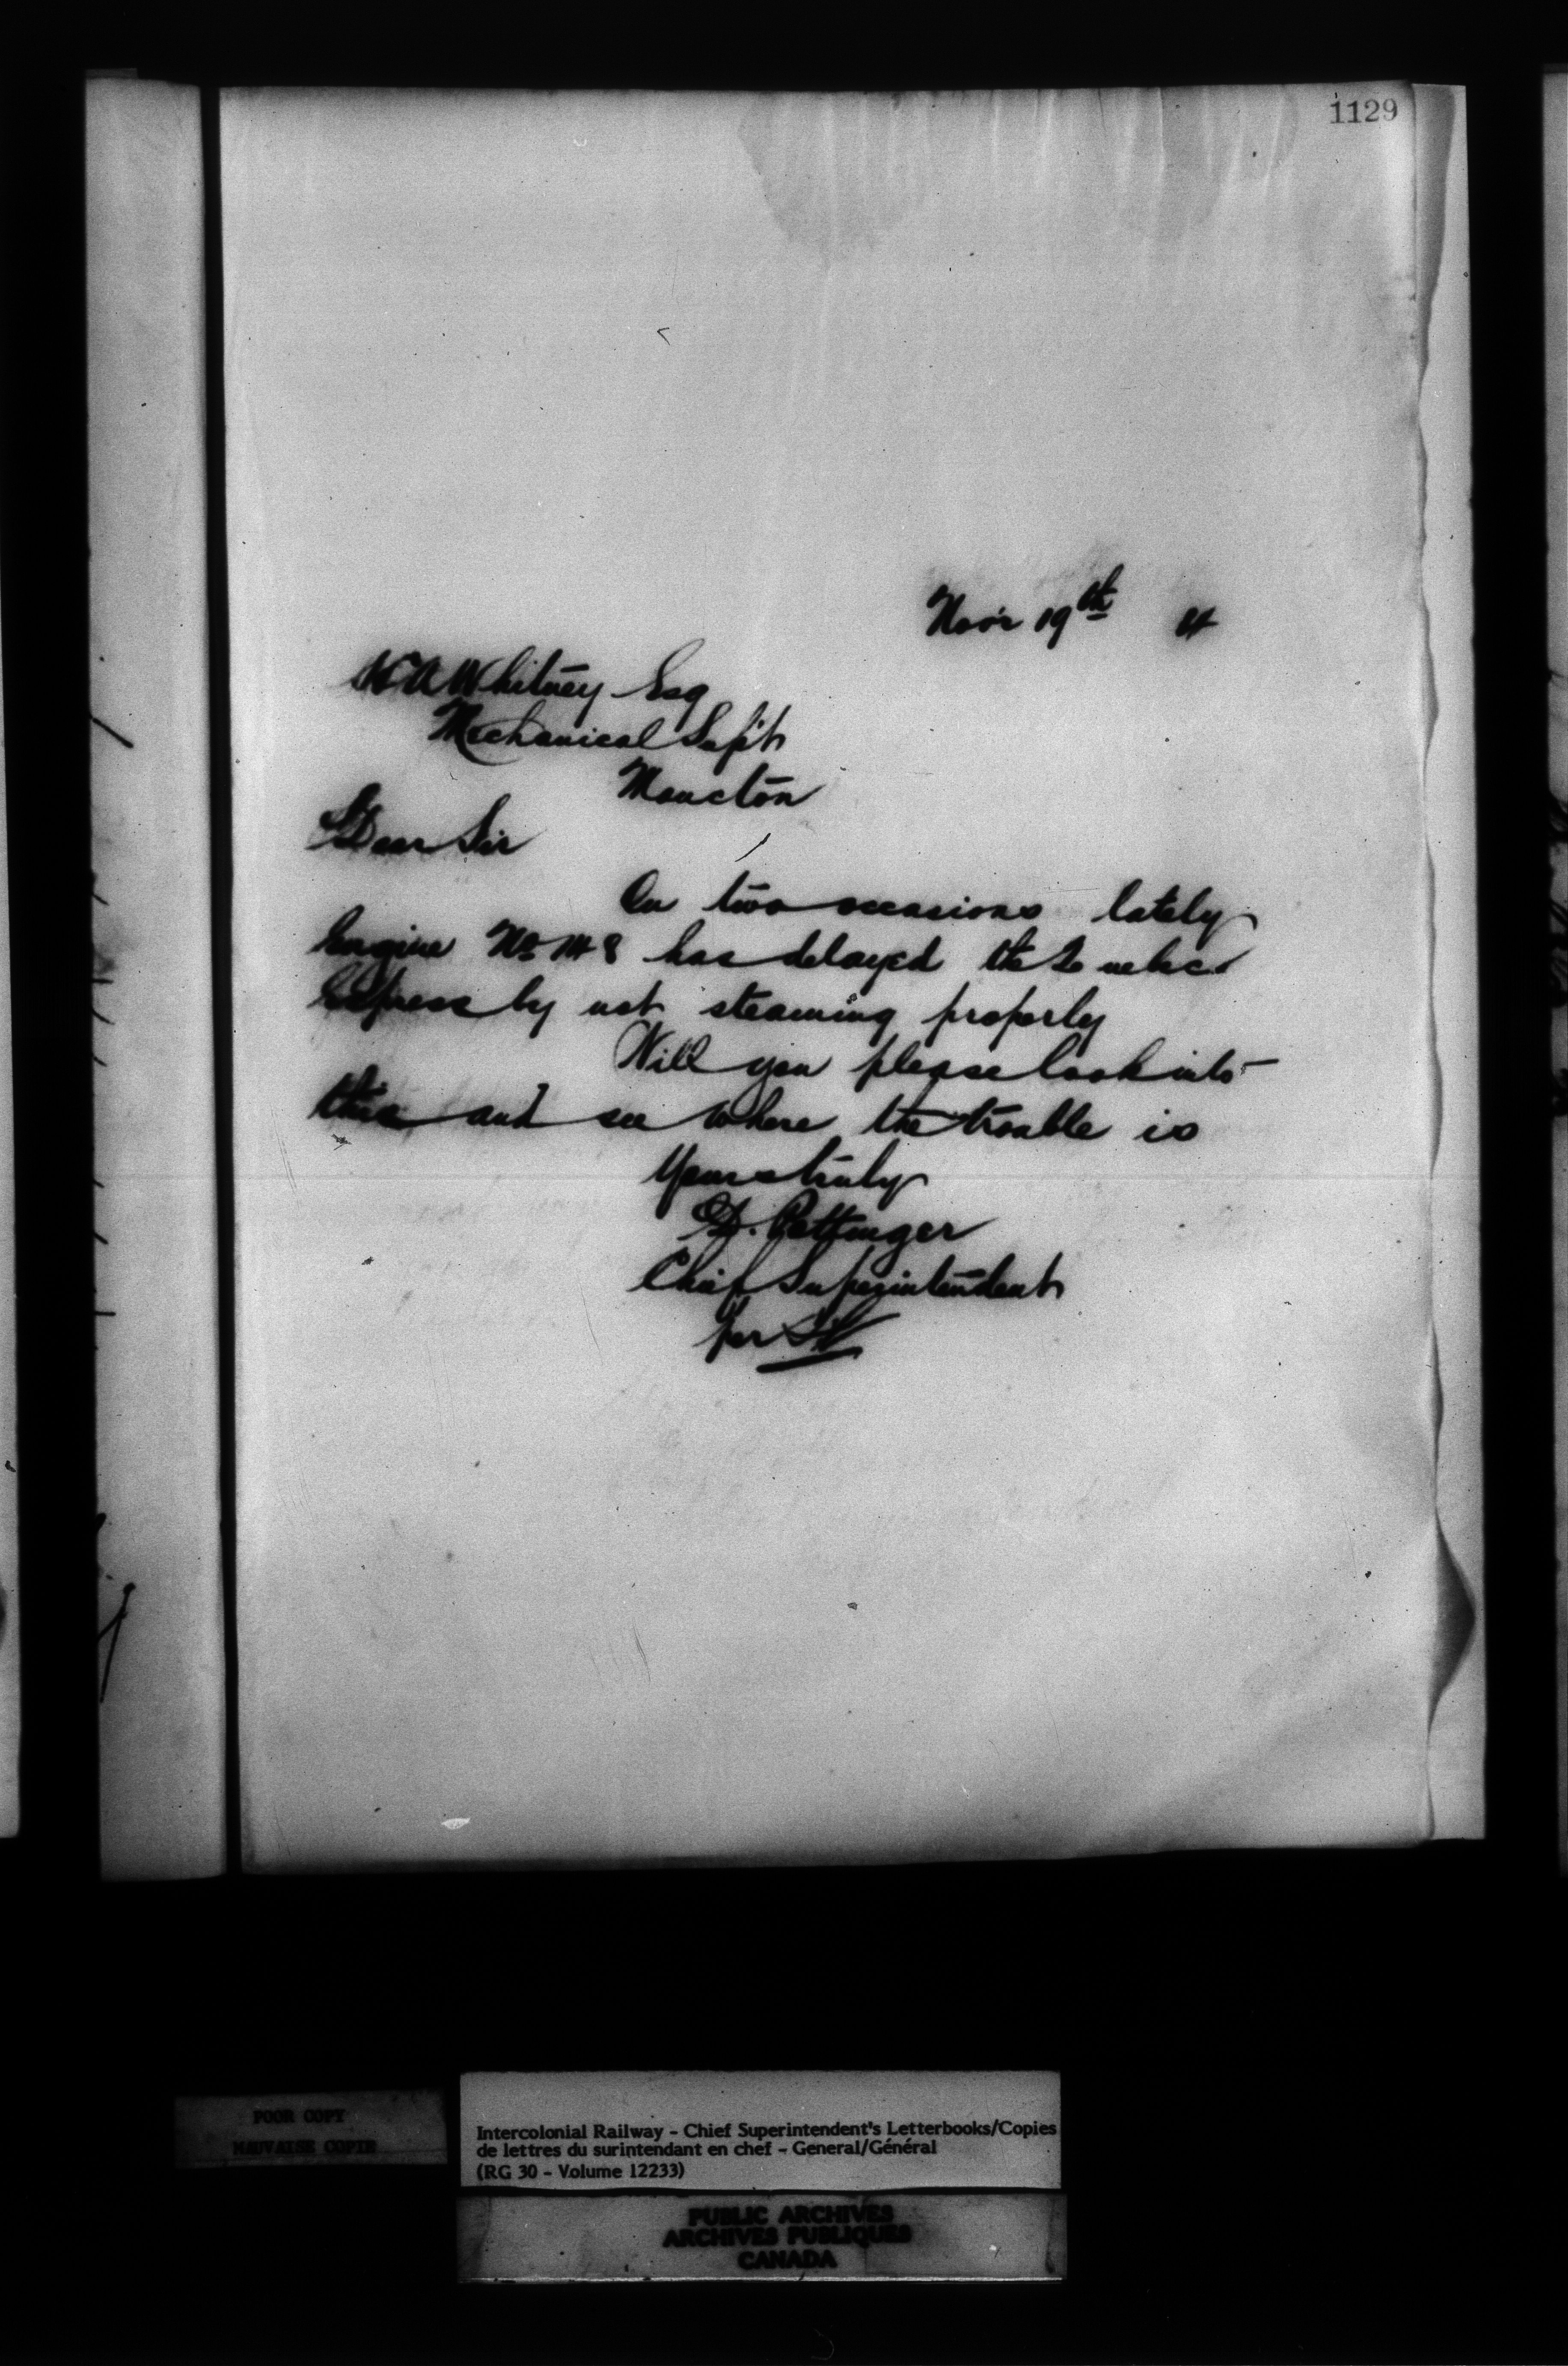 1129
Nov'r 19th 4
H A Whitney Esq
Mechanical Sup't
Moncton
Dear Sir
On two occasions lately
Engine No 148 has delayed the Quebec
Express by not steaming properly
Will you please look into
this and see where the trouble is
Yours truly
D. Pottinger
Chief Superintendent
per
POOR COPY
MAUVAISE COPIE
Intercolonial Railway - Chief Superintendent's Letterbooks/Copies
de lettres du surintendant en chef - General/Général
(RG 30 - Volume 12233)
PUBLIC ARCHIVES
ARCHIVES PUBLIQUES
CANADA